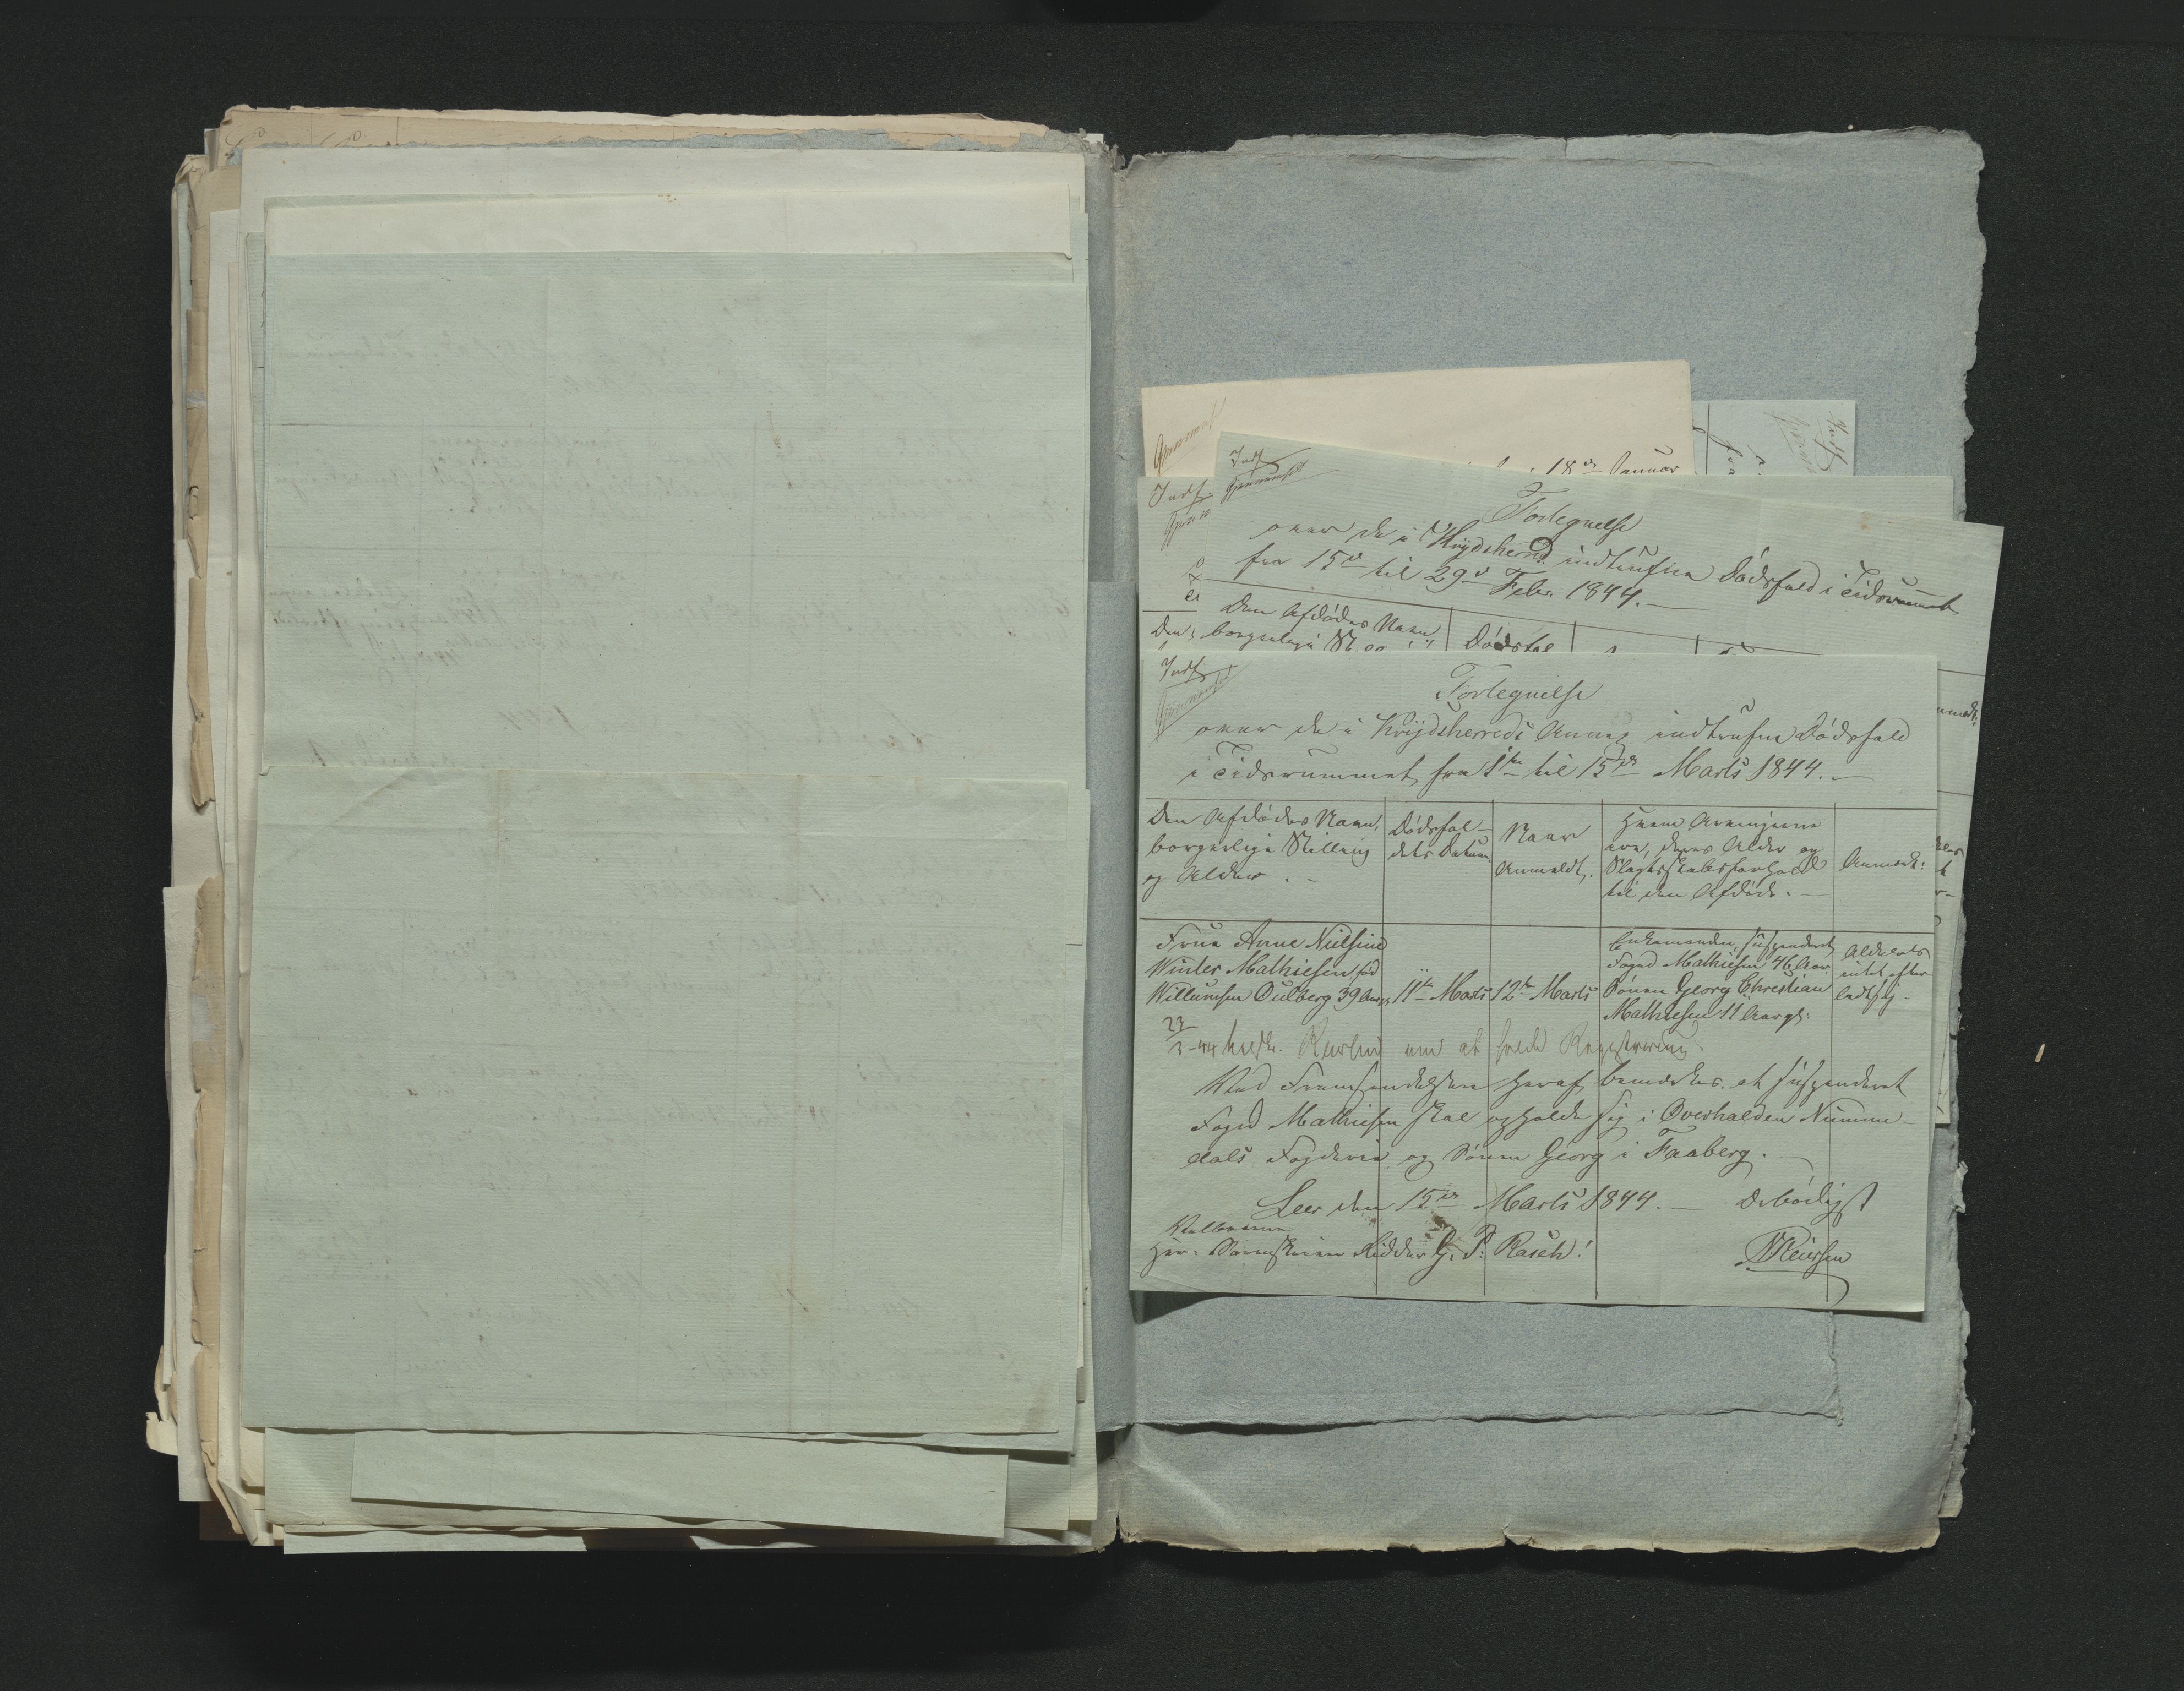 18de Januar
Indf
Gjennemseet
Fortegnelse
over de i Kvydsherred indtrufne Dødsfald i Tidsrummet
fra 15de til 29de Febr. 1844.
Den Afdødes Navn,
borgerlige St. og
Dødsfal
Indf
Gjennemseet
Fortegnelse
over de i Kvydsherreds Annex indtrufne Dødsfald
i Tidsrummet fra 1ste til 15de Marts 1844.
Den Afdødes Navn,
borgerlige Stilling
og Alder.
Dødsfal-
dets Datum
Naar
Anmeldt.
Hvem Arvingerne
ere, deres Alder og
Slægtskabsforhold
til den Afdøde.
Anmærk:
Frue Anne Nielsine
Winter Mathiesen född
Willumsen Oulberg 39 Aar
11te Marts
12te Marts
Enkemanden, suspenderet
Foged Mathiesen 46 Aar.
Sønen Georg Christian
Mathiesen 11 Aar gl:
Aldeles
intet efter-
ladt sig.
23/3-44 om at holde Registrering.
Ved Fremsendelsen heraf bemærkes, at suspenderet
Foged Mathiesen skal opholde sig i Overhalden Numme-
dals Fogderie og Sønen Georg i Faaberg.
Leer den 15de Marts 1844. Ærbødigst
Velbaarne
Herr Sorenskriver Ridder G. P. Rasch!